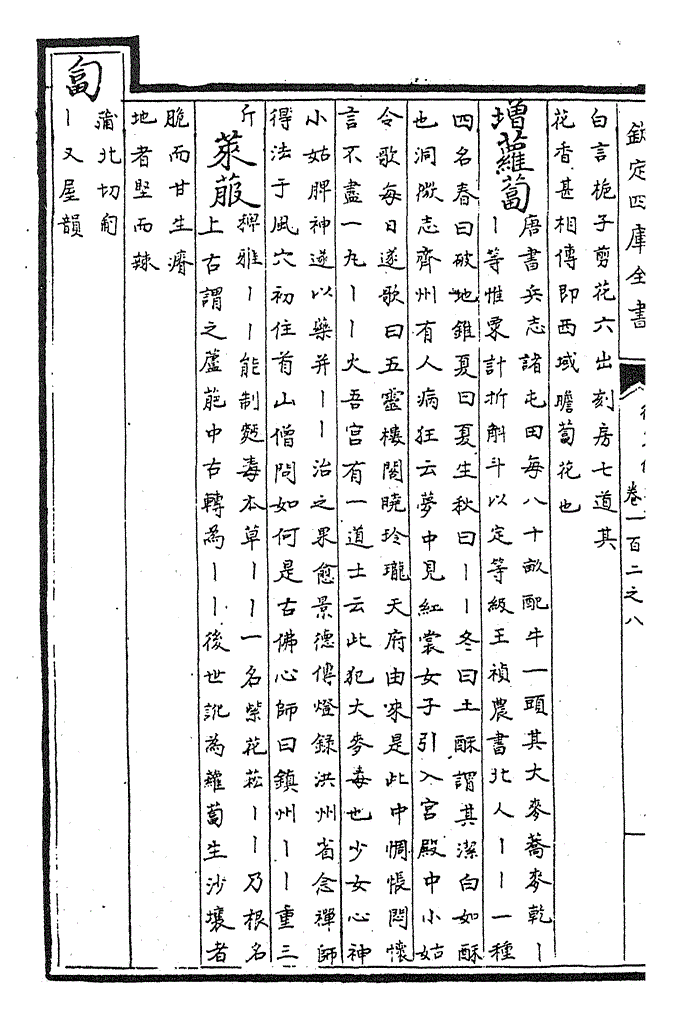 欽定四庫全書
卷一百二之八
白言梔子剪花六出刻房七道其
花香甚相傳即西域瞻蔔花也
増蘿蔔
唐書兵志諸屯田每八十畝配牛一頭其大麥蕎麥乾丨
丨等惟粟計折斛斗以定等級王禎農書北人丨丨一種
四名春曰破地錐夏曰夏生秋曰丨丨冬曰土酥謂其潔白如酥
也洞微志齊州有人病狂云夢中見紅裳女子引入宫殿中小姑
令歌每日遂歌曰五靈樓閣曉玲瓏天府由來是此中惆悵悶懷
言不盡一丸丨丨火吾宫有一道士云此犯大麥毒也少女心神
小姑脾神遂以藥并丨丨治之果愈景德傳燈録洪州省念禪師
得法于風穴初住首山僧問如何是古佛心師曰鎮州丨丨重三
斤
萊菔
稗雅丨丨能制麵毒本草丨丨一名紫花菘丨丨乃根名
上古謂之蘆萉中古轉為丨丨後世訛為蘿蔔生沙壤者
脆而甘生瘠
地者堅而辣
匐
蒲北切匍
丨又屋韻